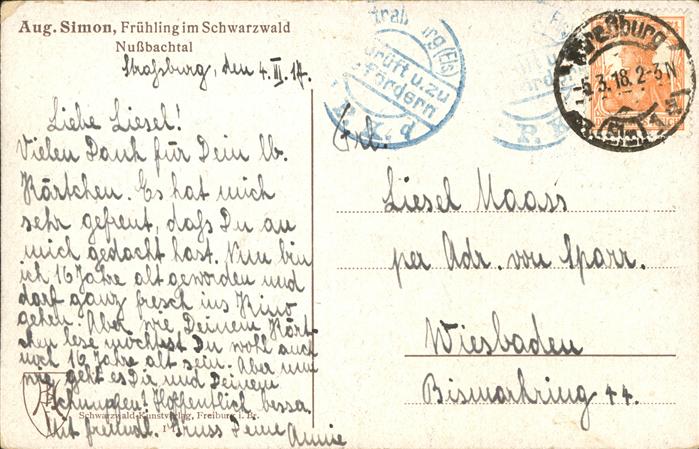 Aug. Simon, Frühling im Schwarzwald
Nußbachtal
Straßburg, den 4. III. 18.
Liebe Liesel!
Vielen Dank für Dein lb.
Kärtchen. Es hat mich
sehr gefreut, daß Du an
mich gedacht hast. Nun bin
ich 16 Jahre alt geworden und
darf ganz fresch ins Kino
gehen. Aber wie Deinem Kärt-
chen lese möchtest Du wohl auch
16 Jahre alt sein. Aber nun
wie geht es Dir und Deinem
Schnupfen? Hoffentlich besser.
Schwarzwald-Kunstverlag, Freiburg i. Br.
Mit freundl. Gruss Deine Annie
Geprüft u. zu
befördern
P. K. d
(Els)
P. K.
Straßburg
-5.3.18. 2-3 N
Frl.
Liesel Maass
per Adr. von Sparr.
Wiesbaden
Bismarkring 44.